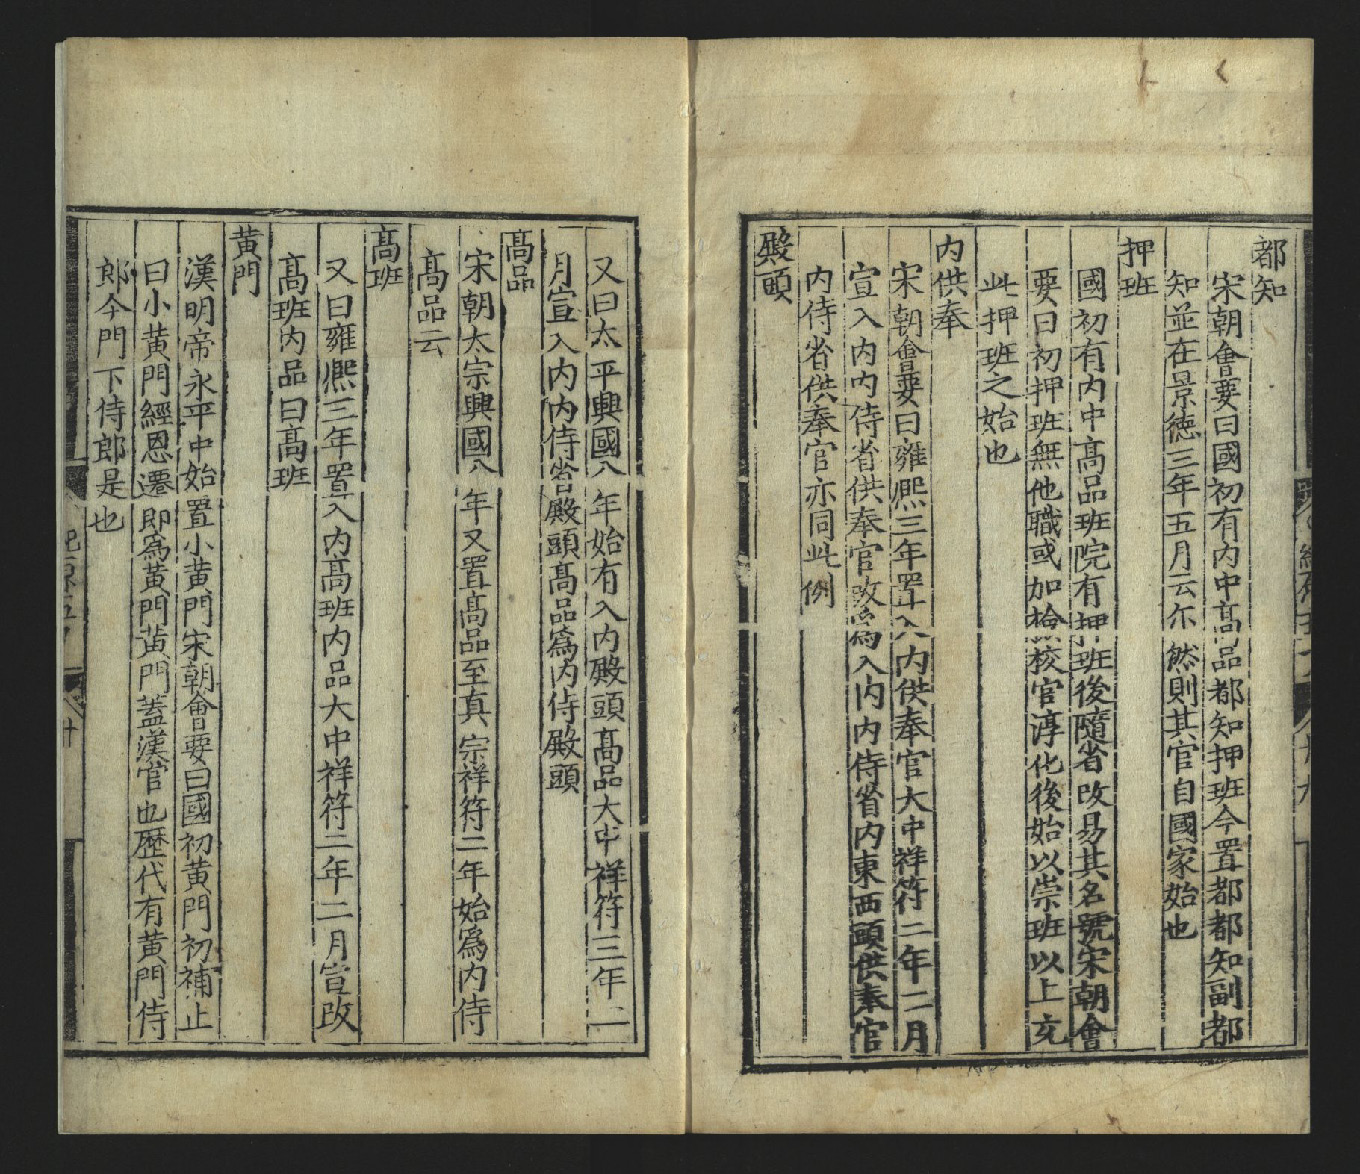 都知
宋朝會要曰國初有内中髙品都知押班今置都都知副都
知並在景德三年五月云尔然則其官自國家始也
押班
國初有内中髙品班院有押班後隨省改易其名號宋朝會
要曰初押班無他職或加檢校官淳化後始以崇班以上充
此押班之始也
内供奉
宋朝會要曰雍熈三年置入内供奉官大中祥符二年二月
宣入内内侍省供奉官改爲入内内侍省内東西頭供奉官
内侍省供奉官亦同此例
殿頭
又曰太平興國八年始有入内殿頭髙品大中祥符三年二
月宣入内内侍省殿頭髙品爲内侍殿頭
髙品
宋朝太宗興國八年又置髙品至真宗祥符二年始爲内侍
髙品云
髙班
又曰雍熈三年置入内髙班内品大中祥符二年二月宣改
髙班内品曰髙班
黄門
漢明帝永平中始置小黄門宋朝會要曰國初黄門初補止
曰小黄門經恩遷即爲黄門黄門蓋漢官也歷代有黄門侍
郎今門下侍郎是也